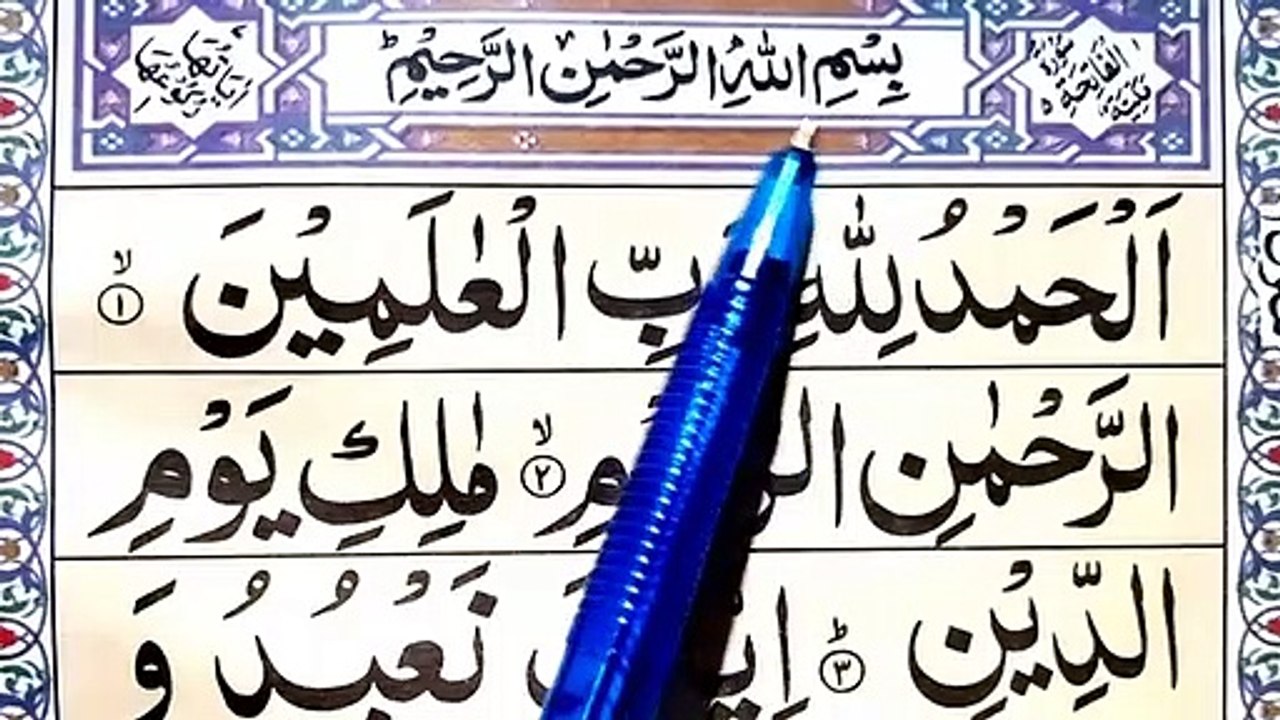 سُوْرَةُ الْفَاتِحَةِ مَكِّيَّةٌ
بِسْمِ اللّٰهِ الرَّحْمٰنِ الرَّحِیْمِ ؕ
اَلْحَمْدُ لِلّٰهِ بِّ الْعٰلَمِیْنَ ۙ ۱
الرَّحْمٰنِ ۙ ۲ مٰلِكِ یَوْمِ
الدِّیْنِ ؕ ۳ نَعْبُدُ وَ